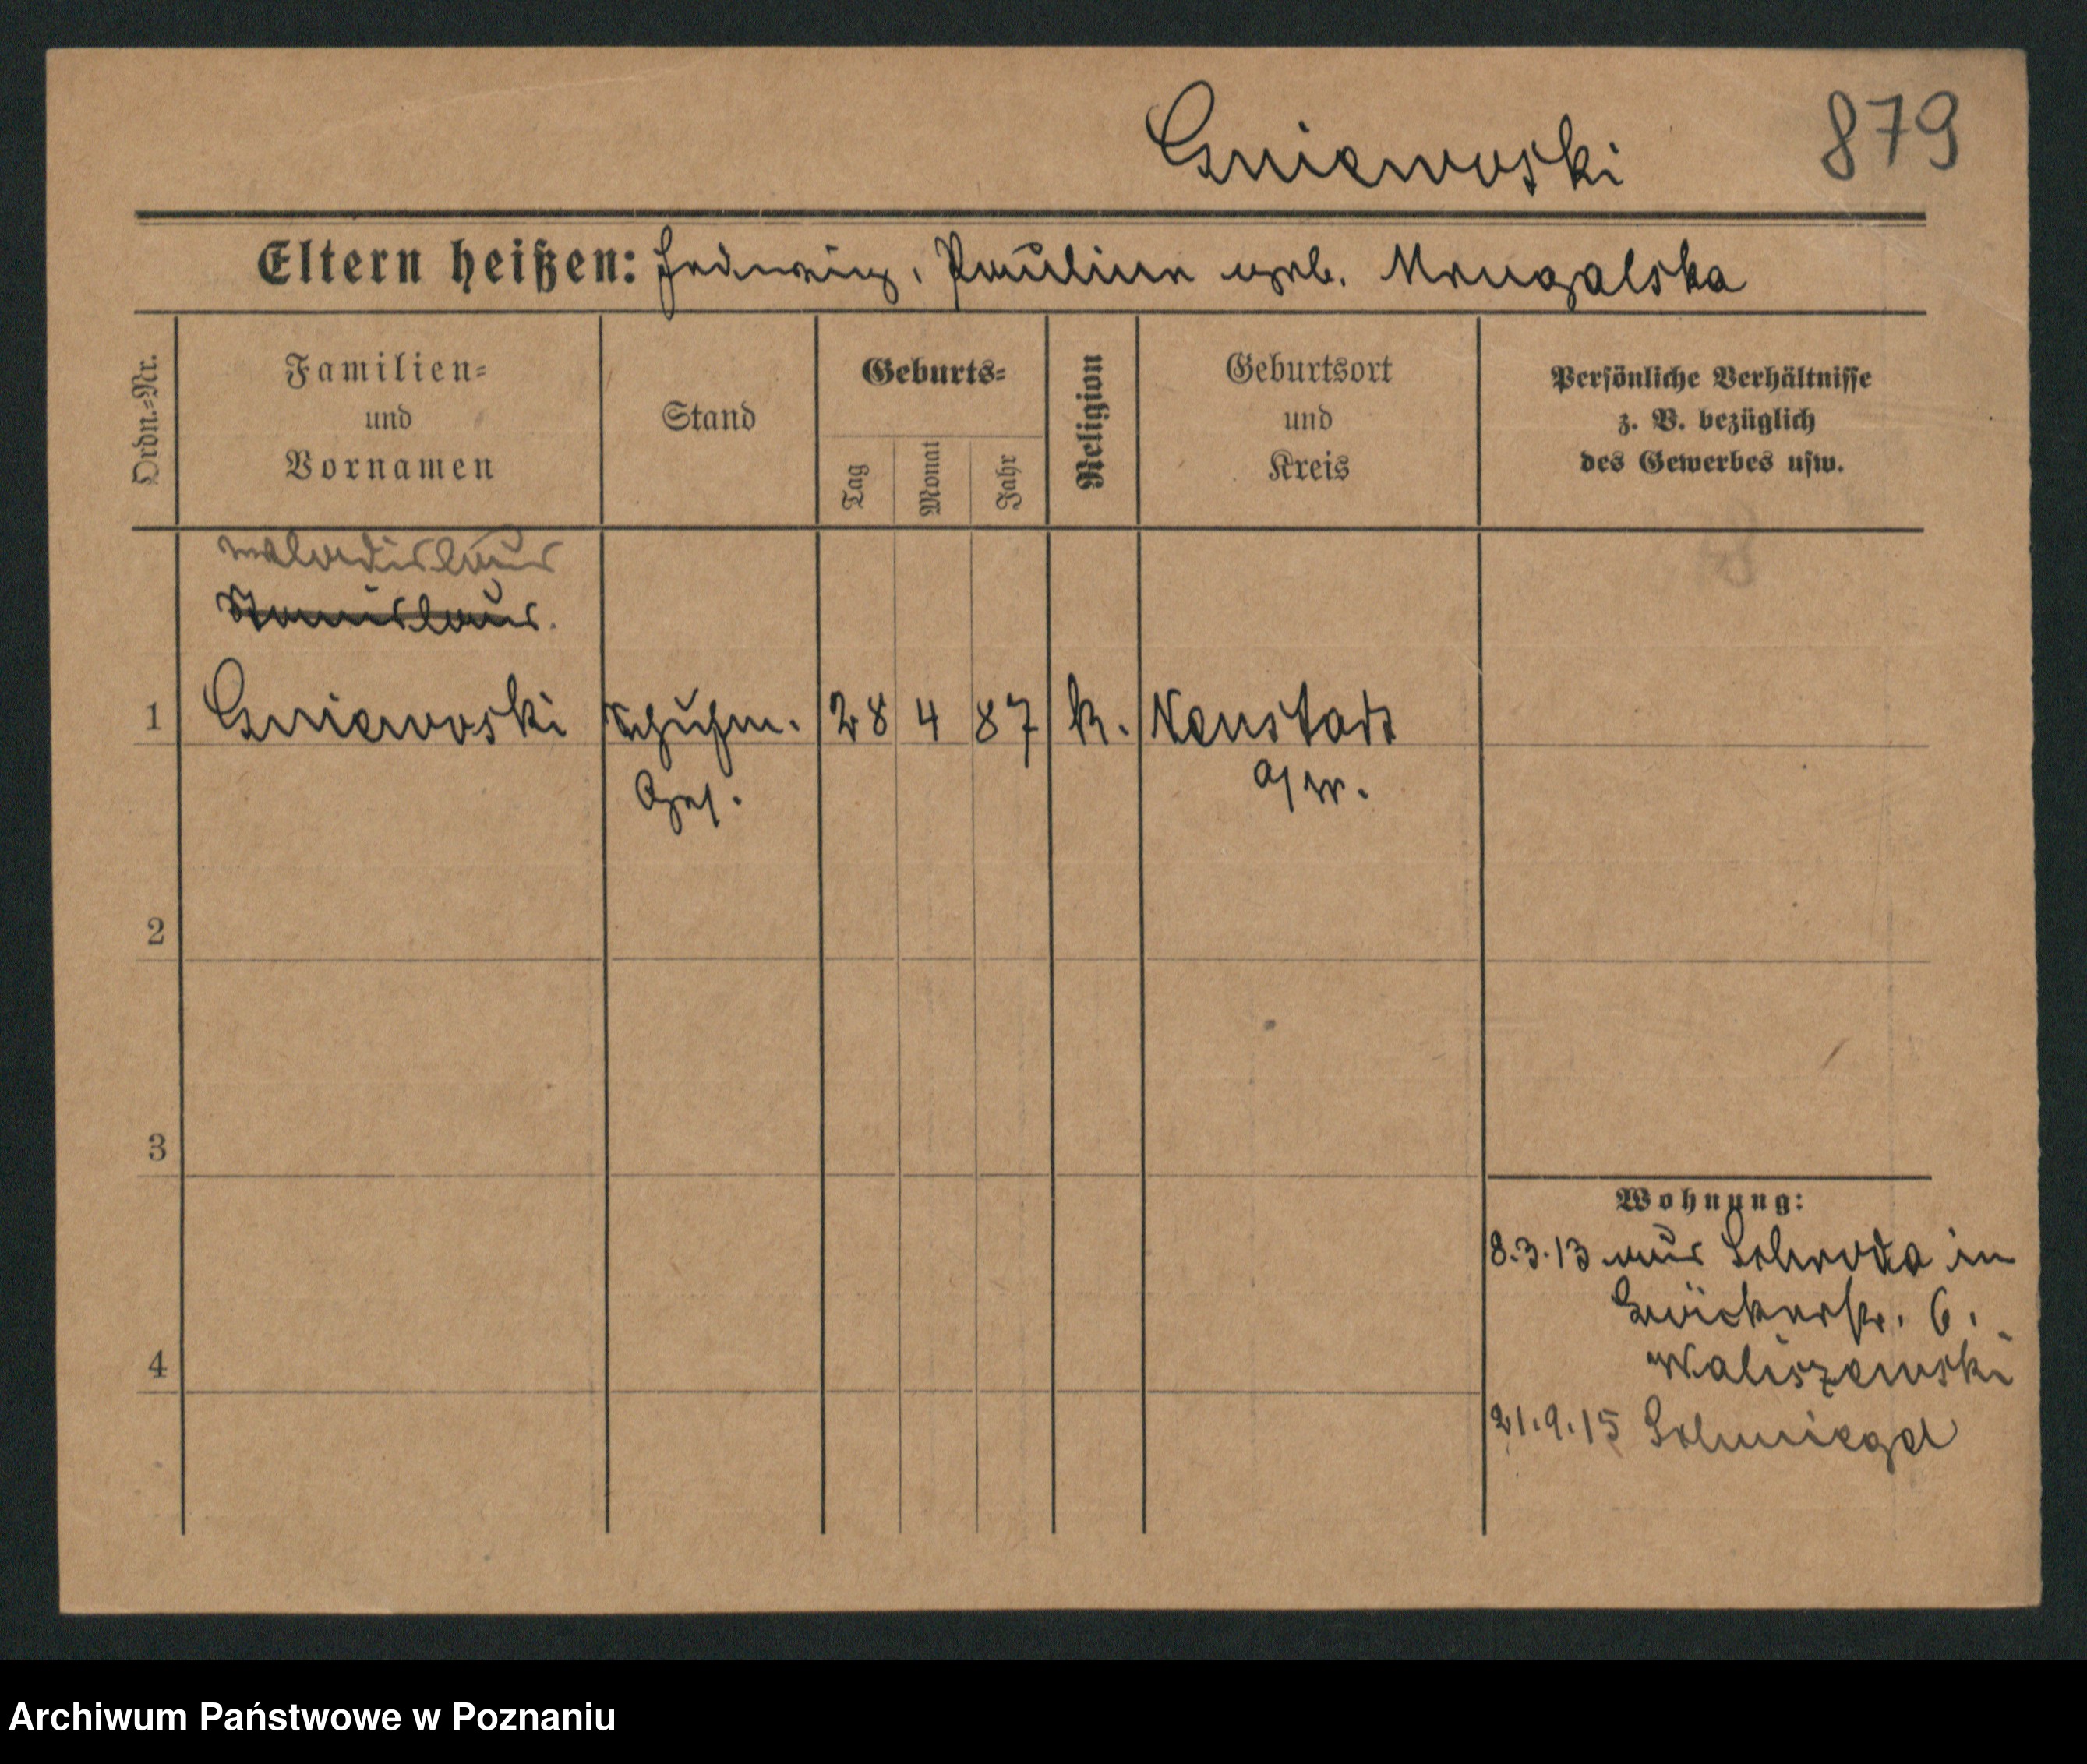 Gniewoski
879
Eltern heißen: Hedwig, Pauline geb. Mrugalska
Ordn.=Nr.
Familien=
und
Vornamen
Stand
Geburts=
Tag
Monat
Jahr
Religion
Geburtsort
und
Kreis
Persönliche Verhältnisse
z. B. bezüglich
des Gewerbes usw.
Wladislaus
Stanislaus.
1 Gniewoski Schuhm. 28 4 87 k. Neustadt
Ges. a/W.
2
3
4
Wohnung:
8.3.13 aus Schroda in
6.
Waliszewski
21.9.15 Schmiegel
Archiwum Państwowe w Poznaniu